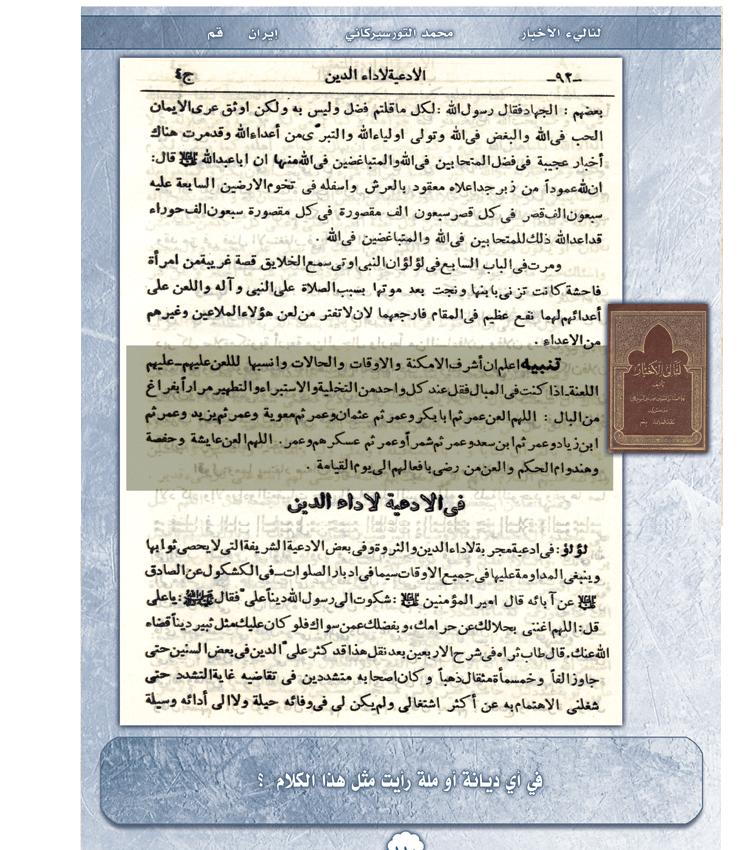 لئاليء الأخبار محمد التورسيركاني إيران قم
ج٤ الادعية لاداء الدين -٩٢-
بعضهم : الجهاد فقال رسول الله : لكل ما قلتم فضل وليس به ولكن اوثق عرى الايمان
الحب فى الله والبغض فى الله وتولى اولياء الله والتبرّى من أعداء الله وقد مرت هناك
أخبار عجيبة فى فضل المتحابين فى الله والمتباغضين فى الله منها ان اباعبدالله قال:
ان لله عموداً من زبرجد اعلاه معقود بالعرش واسفله فى تخوم الارضين السابعة عليه
سبعون الف قصر فى كل قصر سبعون الف مقصورة فى كل مقصورة سبعون الف حوراء
قد اعد الله ذلك للمتحابين فى الله والمتباغضين فى الله .
ومرت فى الباب السابع فى لؤلؤ ان النبى اوتى سمع الخلايق قصة غريبة من امرأة
فاحشة كانت تزنى بابنها ونجت بعد موتها بسبب الصلاة على النبى و آله واللعن على
أعدائهم لهما نفع عظيم فى المقام فارجعهما لان لا تفتر من لعن هؤلاء الملاعين وغيرهم
من الاعداء .
تنبيه اعلم ان أشرف الامكنة والاوقات والحالات وانسبها للعن عليهم - عليهم
اللعنة - اذا كنت فى المبال فقل عند كل واحد من التخلية والاستبراء والتطهير مراراً بفراغ
من البال : اللهم العن عمر ثم ابابكر وعمر ثم عثمان وعمر ثم معوية وعمر ثم يزيد وعمر ثم
ابن زياد وعمر ثم ابن سعد وعمر ثم شمراً وعمر ثم عسكرهم وعمر. اللهم العن عايشة وحفصة
وهند وام الحكم والعن من رضى بافعالهم الى يوم القيامة .
فى الادعية لاداء الدين
لؤلؤ : فى ادعية مجربة لاداء الدين والثروة وفى بعض الادعية الشريفة التى لا يحصى ثوابها
وينبغى المداومة عليها فى جميع الاوقات سيما فى ادبار الصلوات - فى الكشكول عن الصادق
عن آبائه قال امير المؤمنين : شكوت الى رسول الله ديناً علىّ فقال : يا على
قل : اللهم اغننى بحلالك عن حرامك، وبفضلك عمن سواك فلو كان عليك مثل ثبير ديناً قضاء
الله عنك. قال طاب ثراه فى شرح الاربعين بعد نقل هذا قد كثر علىّ الدين فى بعض السنين حتى
جاوز الفاً وخمسمأة مثقال ذهباً و كان اصحابه متشددين فى تقاضيه غاية التشدد حتى
شغلنى الاهتمام به عن أكثر اشتغالى ولم يكن لى فى وفائه حيلة ولا الى أدائه وسيلة
لئالئ الأخبار
في أي ديانة أو ملة رأيت مثل هذا الكلام ؟